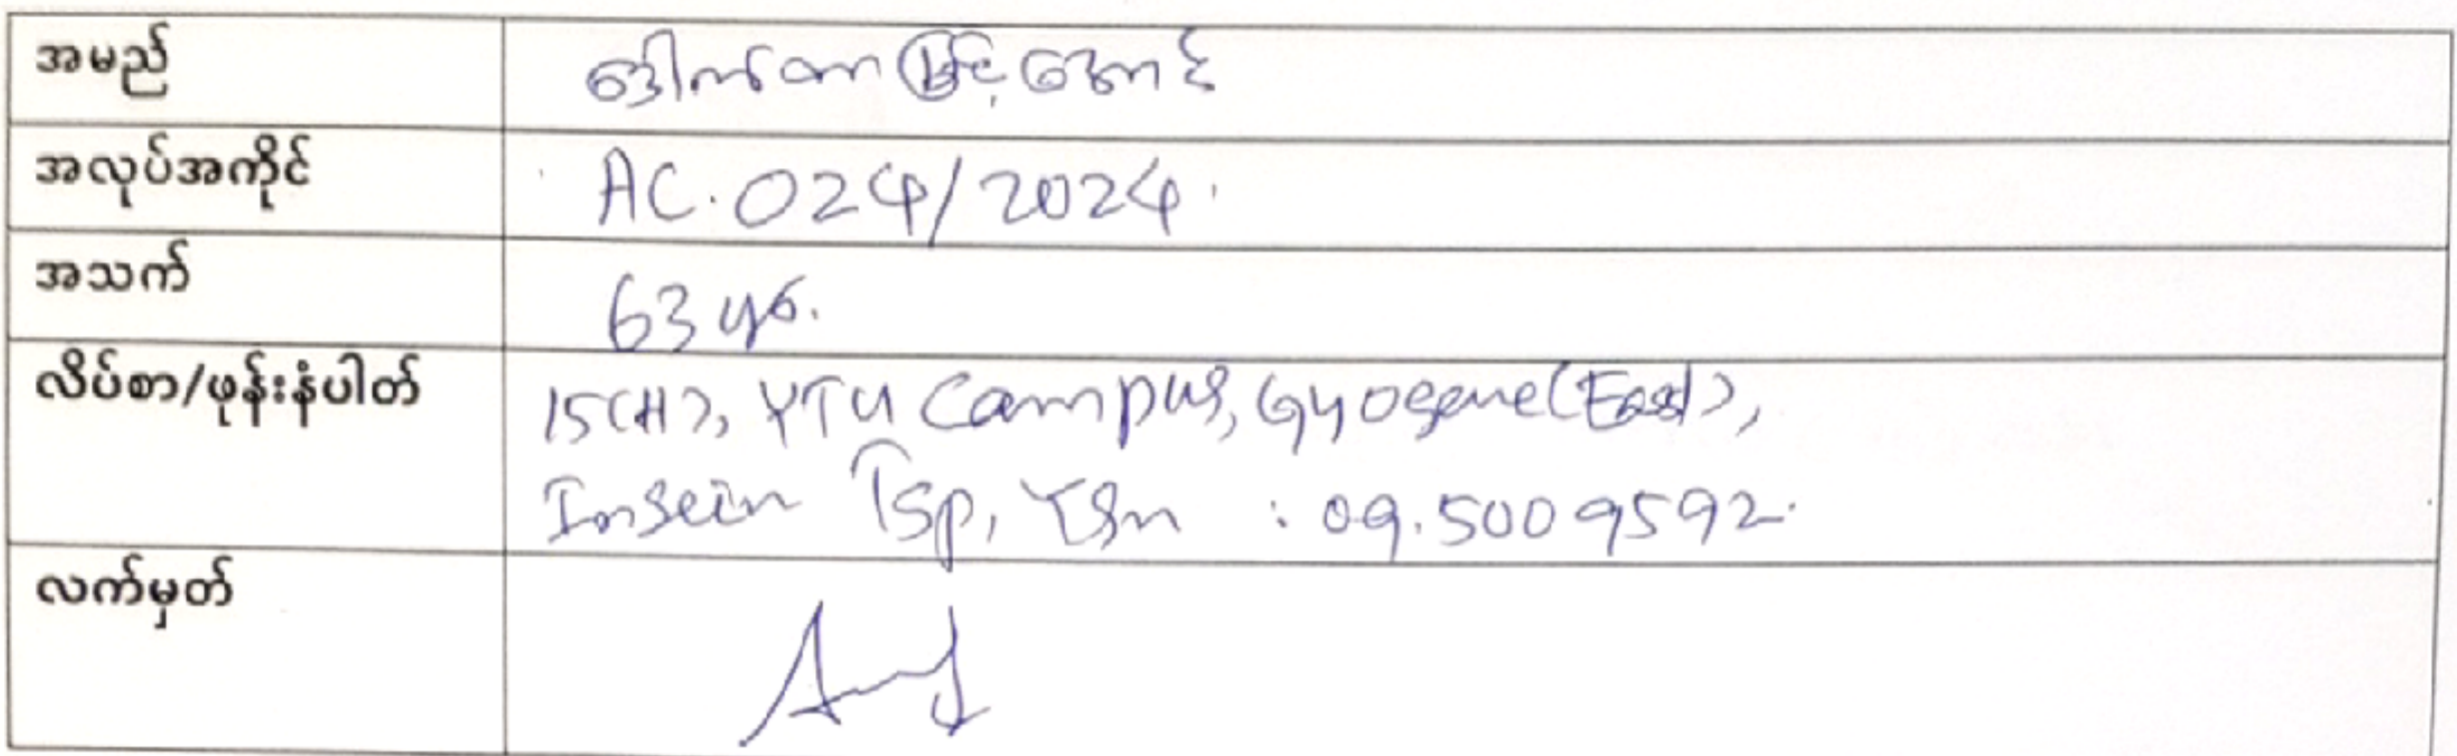 အမည် ဒေါက်တာမြင့်အောင်
အလုပ်အကိုင် AC.024/2024.
အသက် 63 yrs.
လိပ်စာ/ဖုန်းနံပါတ် 15(H), YTU Campus, Gyogone(East),
Insein Tsp, Ygn : 09.5009592.
လက်မှတ်